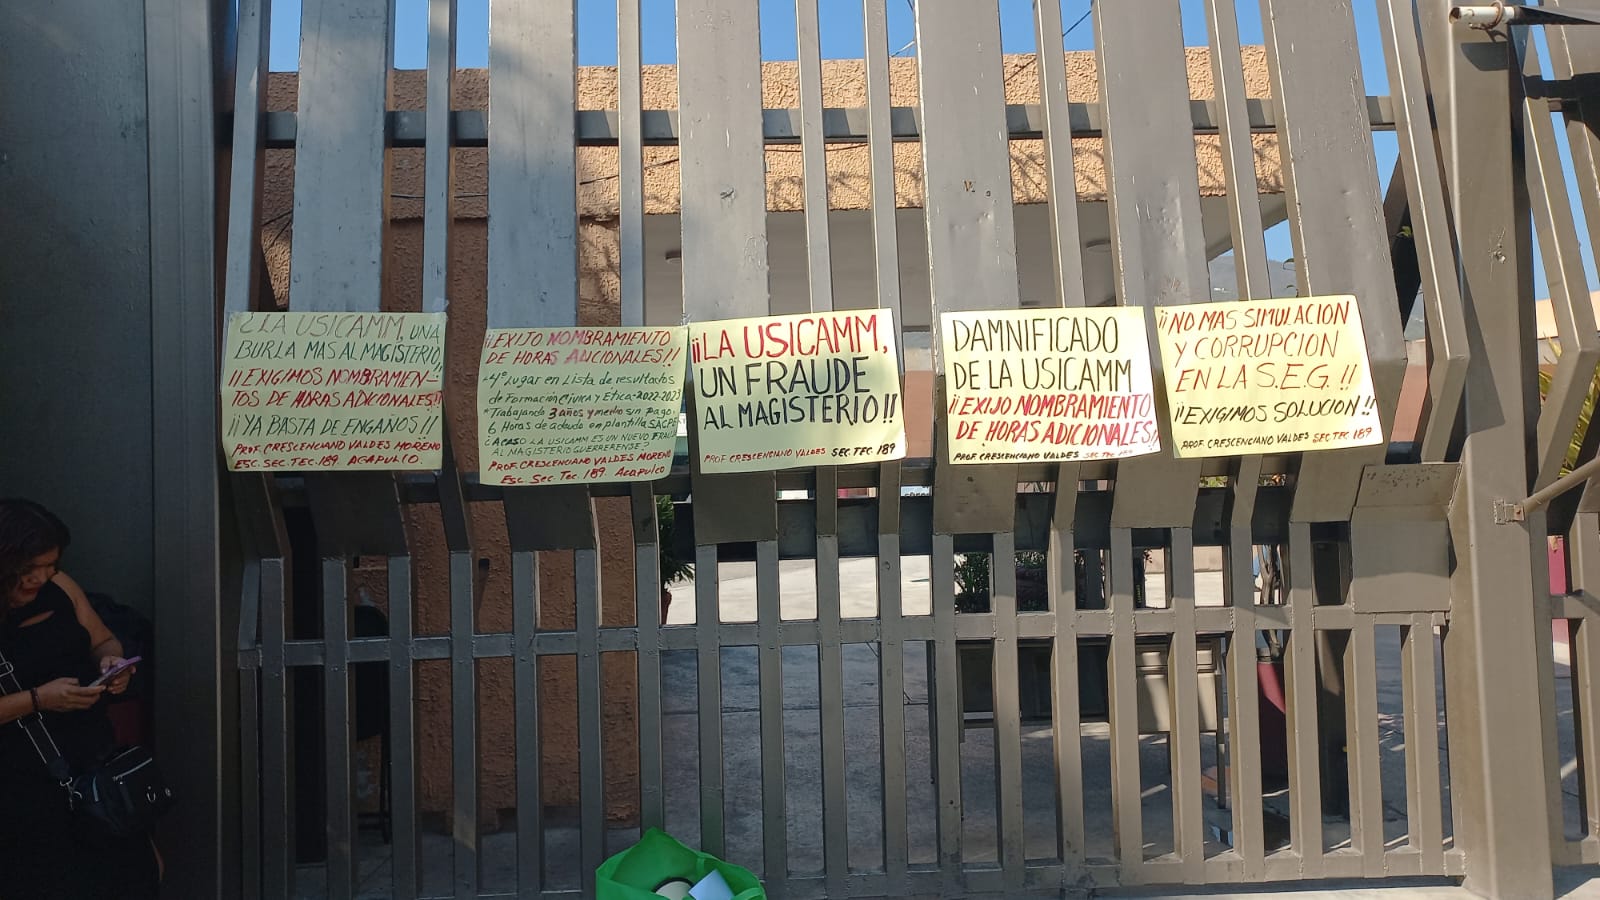 ¿LA USICAMM, UNA
BURLA MAS AL MAGISTERIO,!!
¡¡EXIGIMOS NOMBRAMIEN-
TOS DE HORAS ADICIONALES!!
¡¡YA BASTA DE ENGAÑOS!!
PROF. CRESCENCIANO VALDES MORENO
ESC. SEC. TEC. 189. ACAPULCO.
¡¡EXIJO NOMBRAMIENTO
DE HORAS ADICIONALES!!
-4º Lugar en Lista de resultados
de Formación Cívica y Etica-2022-2023
*Trabajando 3 años y medio sin pago,
6 Horas de adeudo en plantilla SACPE
¿ACASO LA USICAMM ES UN NUEVO FRAUDE
AL MAGISTERIO GUERRERENSE?
PROF. CRESCENCIANO VALDES MORENO
ESC. SEC. TEC. 189. Acapulco
¡¡LA USICAMM,
UN FRAUDE
AL MAGISTERIO!!
PROF. CRESCENCIANO VALDES SEC. TEC. 189
DAMNIFICADO
DE LA USICAMM
¡¡EXIJO NOMBRAMIENTO
DE HORAS ADICIONALES!!
PROF. CRESCENCIANO VALDES SEC TEC 189
¡¡NO MAS SIMULACION
Y CORRUPCION
EN LA S.E.G. !!
¡¡EXIGIMOS SOLUCION!!
PROF. CRESCENCIANO VALDES SEC TEC. 189